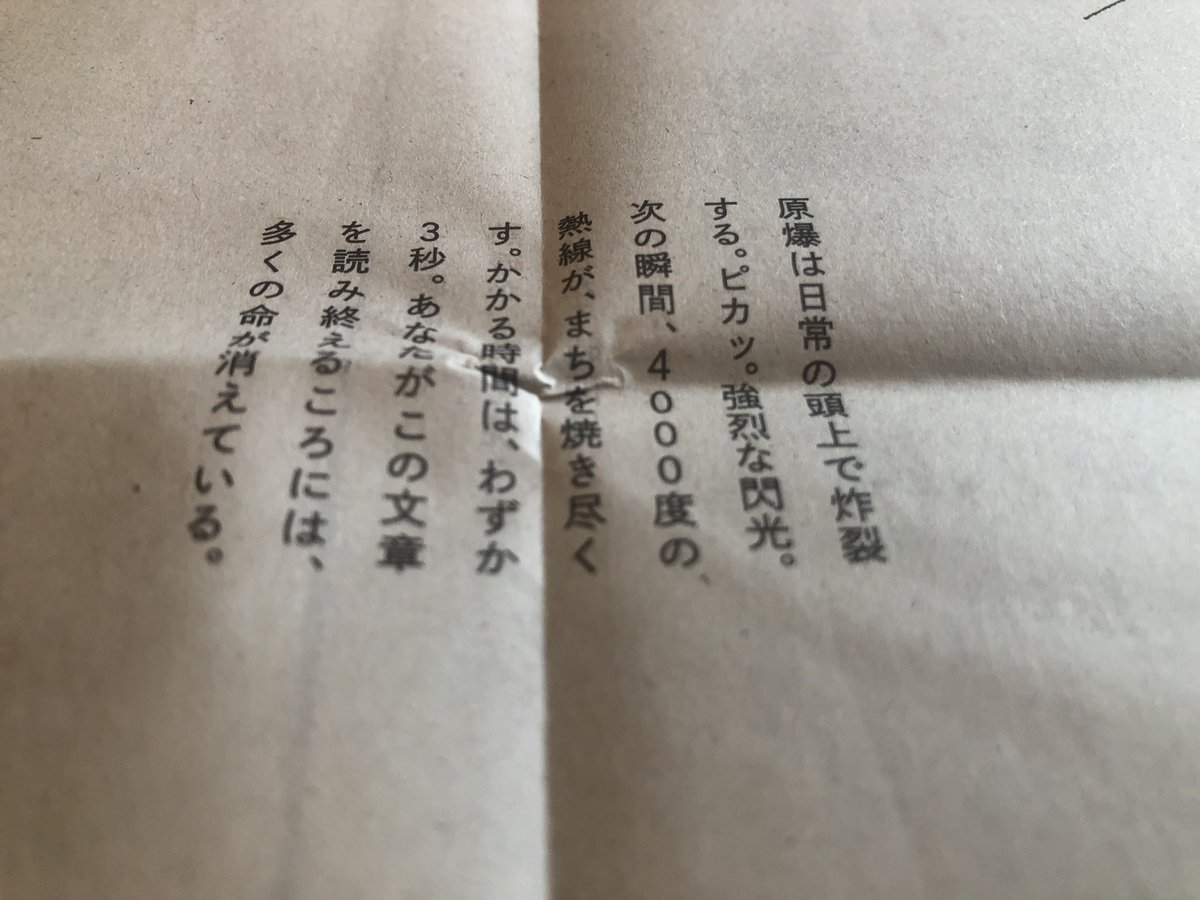 原爆は日常の頭上で炸裂
する。ピカッ。強烈な閃光。
次の瞬間、４０００度の
熱線が、まちを焼き尽く
す。かかる時間は、わずか
３秒。あなたがこの文章
を読み終えるころには、
多くの命が消えている。